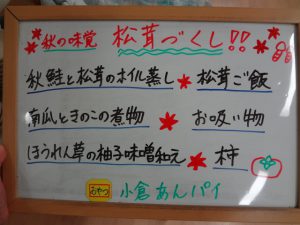 秋の味覚 松茸づくし!!
秋鮭と松茸のホイル蒸し 松茸ご飯
南瓜ときのこの煮物 お吸い物
ほうれん草の柚子味噌和え 柿
おやつ 小倉あんパイ